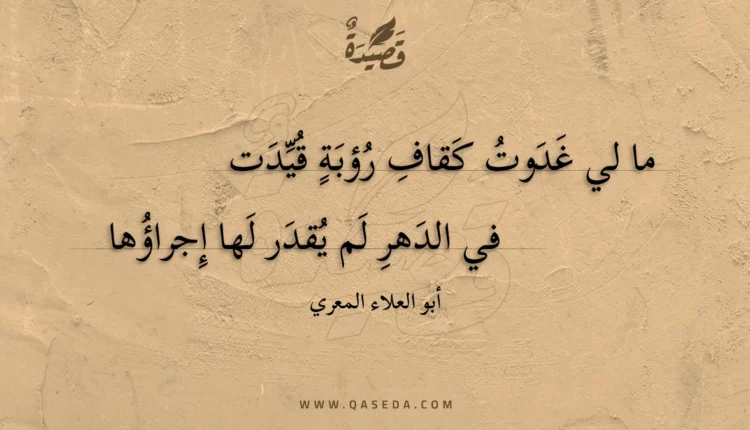 قَصِيدَةٌ
ما لي غَدَوتُ كَقافِ رُؤبَةٍ قُيِّدَت
في الدَهرِ لَم يُقدَر لَها إِجراؤُها
أبو العلاء المعري
WWW.QASEDA.COM